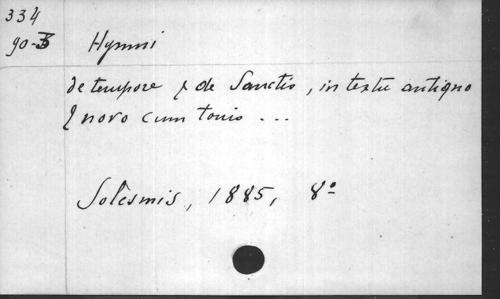 334
90-B
Hymni
de tempore & de Sanctis, in textu antiquo
& novo cum tonis ...
Solesmis, 1885, 8º